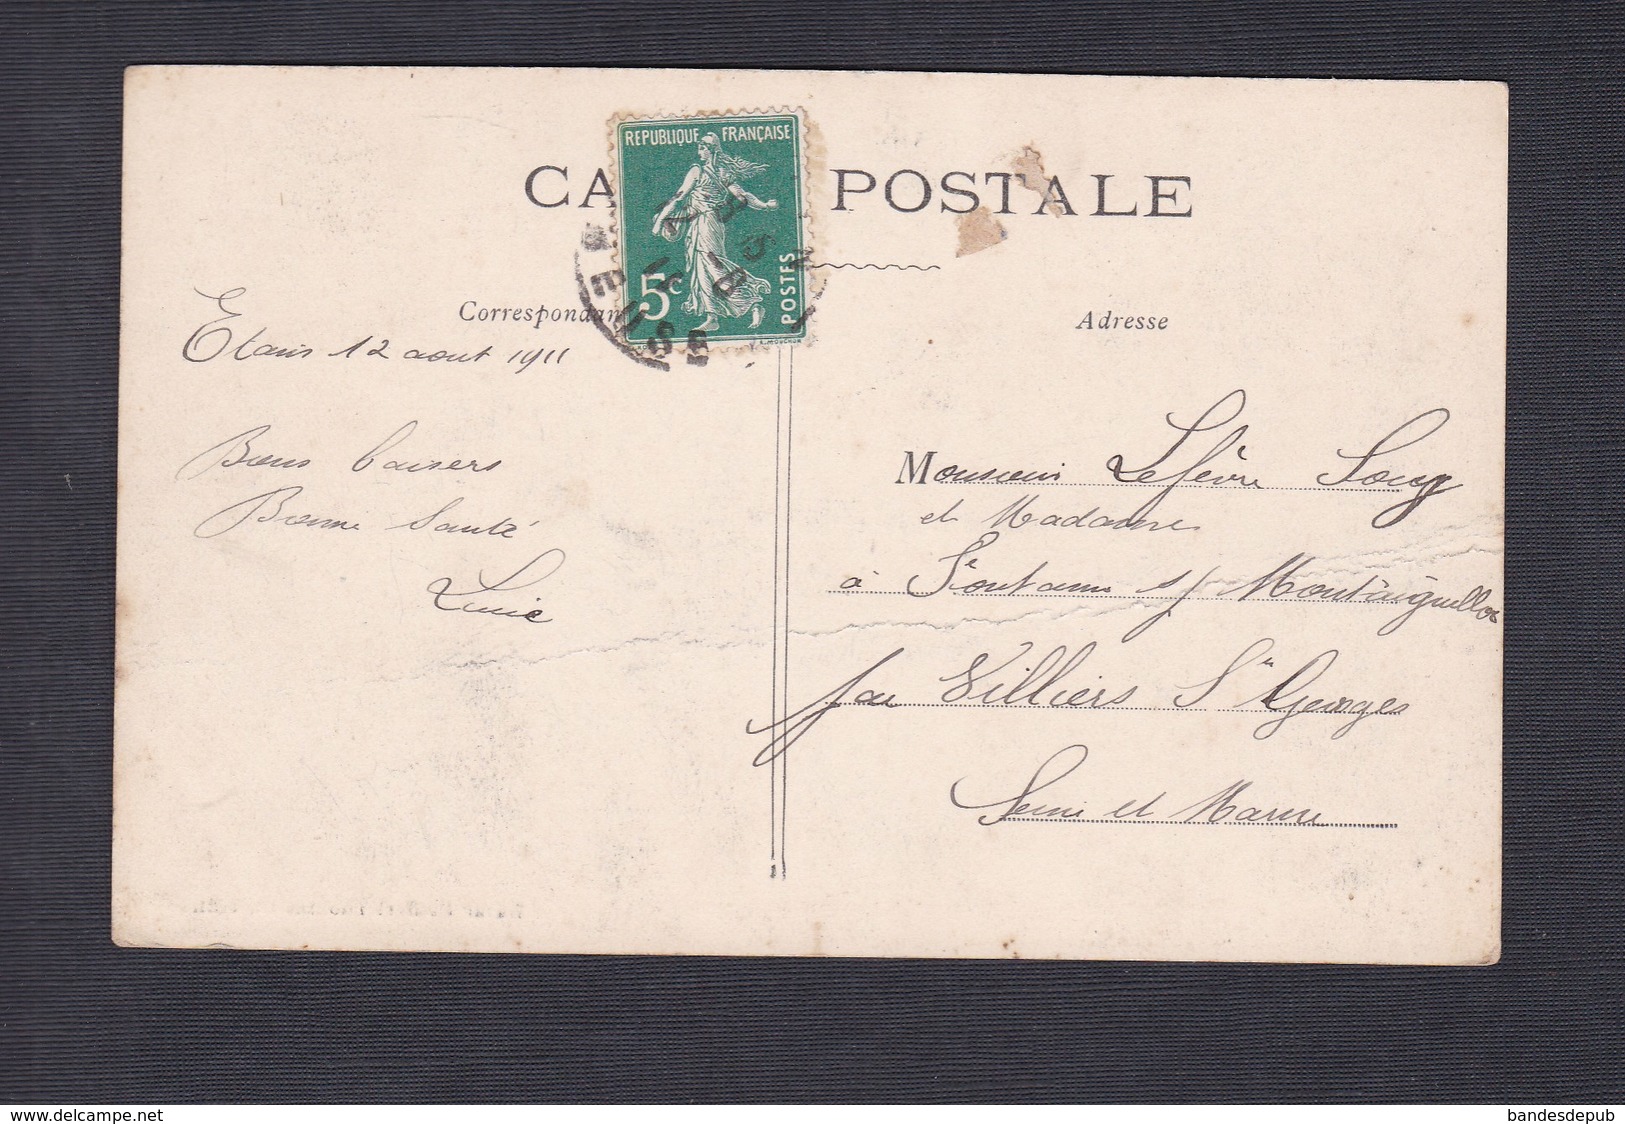 CA POSTALE
REPUBLIQUE FRANÇAISE
5c
POSTES
Correspondan
Adresse
Etais 12 aout 1911
Bons baisers
Bonne Santé
Lucie
Monsieur Lefèvre Souy
et Madame
à Fontaine s/ Montaiguillon
par Villiers St Georges
Seine et Marne
delcampe.net
bandesdepub